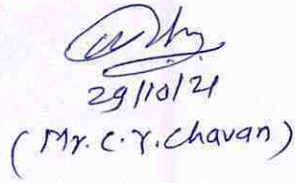 29/10/21
(Mr. C. Y. Chavan)